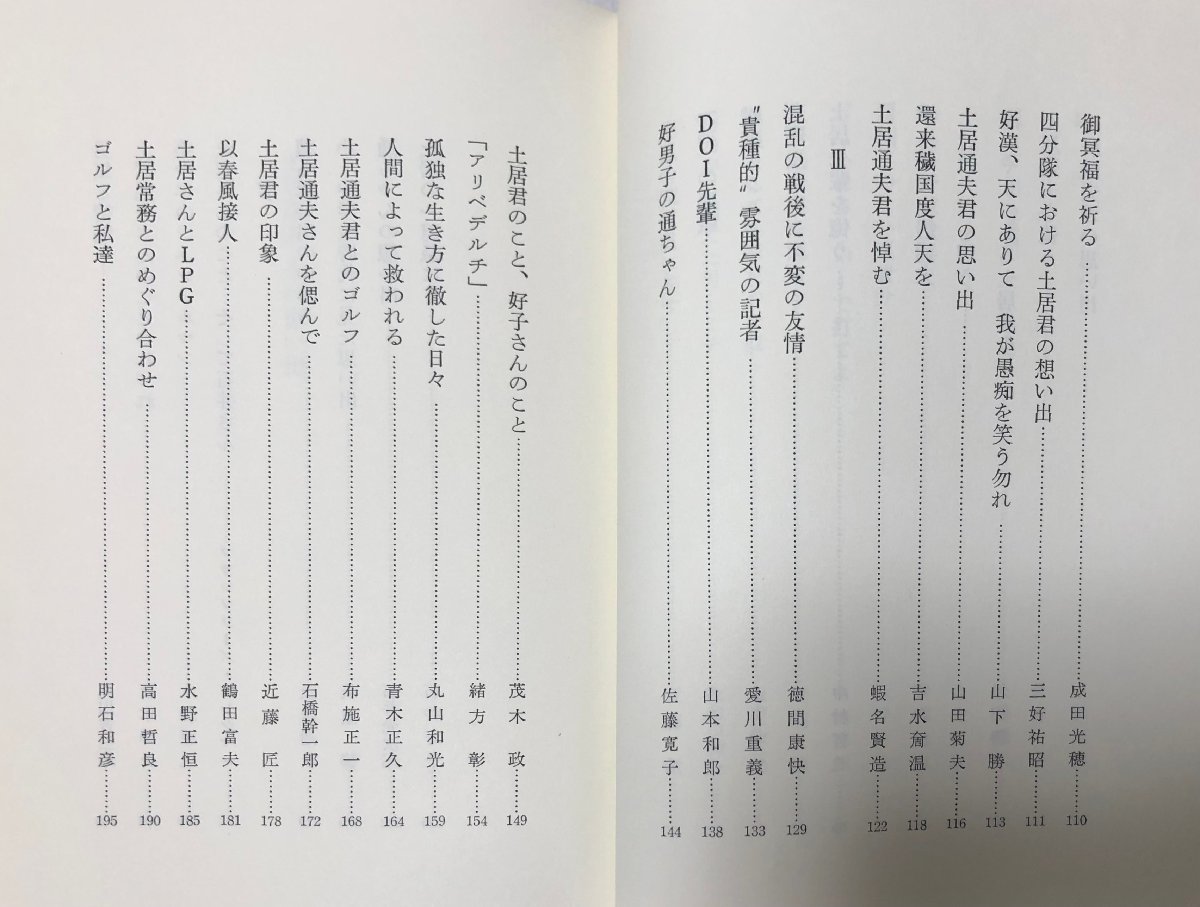 御冥福を祈る……成田光穂……110
四分隊における土居君の想い出……三好祐昭……111
好漢、天にありて 我が愚痴を笑う勿れ……山下勝……113
土居通夫君の思い出……山田菊夫……116
還来穢国度人天を……吉水奝温……118
土居通夫君を悼む……蝦名賢造……122
Ⅲ
混乱の戦後に不変の友情……徳間康快……129
“貴種的”雰囲気の記者……愛川重義……133
DOI先輩……山本和郎……138
好男子の通ちゃん……佐藤寛子……144
土居君のこと、好子さんのこと……茂木政……149
「アリベデルチ」……緒方彰……154
孤独な生き方に徹した日々……丸山和光……159
人間によって救われる……青木正久……164
土居通夫君とのゴルフ……布施正一……168
土居通夫さんを偲んで……石橋幹一郎……172
土居君の印象……近藤匠……178
以春風接人……鶴田富夫……181
土居さんとLPG……水野正恒……185
土居常務とのめぐり合わせ……高田哲良……190
ゴルフと私達……明石和彦……195